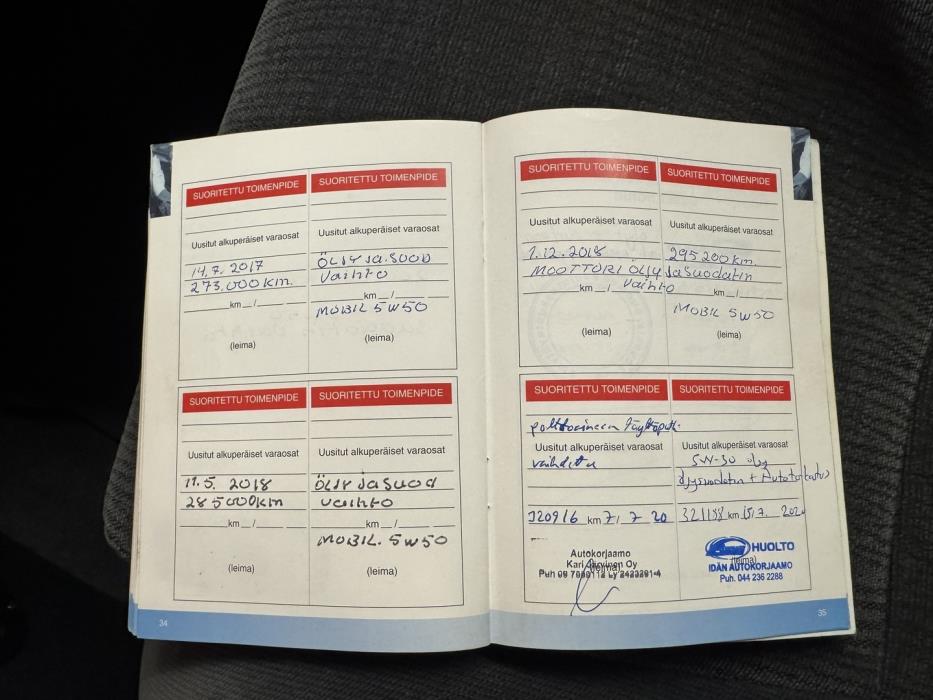 SUORITETTU TOIMENPIDE
Uusitut alkuperäiset varaosat
14.7. 2017
273.000 km.
km /
(leima)
SUORITETTU TOIMENPIDE
Uusitut alkuperäiset varaosat
ÖLJY JA.SUOD
vaihto
km /
MOBIL 5W50
(leima)
SUORITETTU TOIMENPIDE
Uusitut alkuperäiset varaosat
11.5. 2018
285000km
km /
(leima)
SUORITETTU TOIMENPIDE
Uusitut alkuperäiset varaosat
ÖLJY JA SUOD
vaihto
km /
MOBIL. 5W50
(leima)
34
SUORITETTU TOIMENPIDE
SUORITETTU TOIMENPIDE
Uusitut alkuperäiset varaosat
Uusitut alkuperäiset varaosat
1.12.2018
295200km.
MOOTTORI ÖLJY JA SUODATIN
vaihto
km /
km /
MOBIL 5W50
(leima)
(leima)
SUORITETTU TOIMENPIDE
polttoaineen täyttöputk.
Uusitut alkuperäiset varaosat
vaihdettu
320916 km 7 / 7 20
Autokorjaamo
Kari Järvinen Oy
(leima)
SUORITETTU TOIMENPIDE
Uusitut alkuperäiset varaosat
5W-30 öljy
öljysuodatin +
km 15/7. 202
HUOLTO
(leima)
IDÄN AUTOKORJAAMO
Puh. 044 236 2288
35